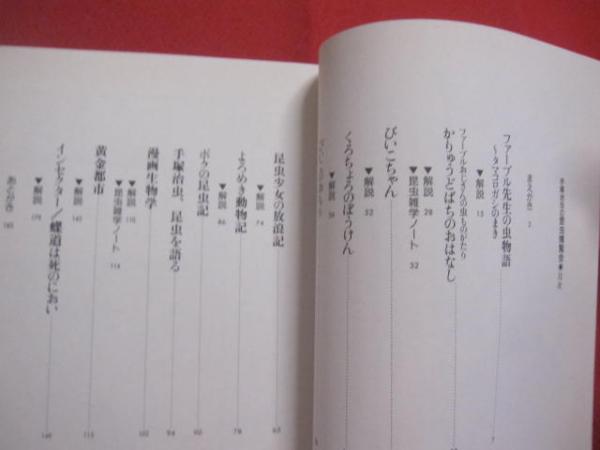 手塚治虫の昆虫博覧会●目次
まえがき 2
ファーブル先生の虫物語
～タマコロガシのまき 7
▼解説 15
ファーブルおじさんの虫ものがたり
かりゅうどばちのおはなし
▼解説 28
▼昆虫雑学ノート 32
ぴいこちゃん
▼解説 52
くろちょろのぼうけん
▼解説
昆虫少女の放浪記 63
▼解説 74
よろめき動物記 79
▼解説 86
ボクの昆虫記
手塚治虫、昆虫を語る 94
漫画生物学 102
▼解説 110
▼昆虫雑学ノート 114
黄金都市 115
▼解説
インセクター／蝶道は死のにおい
▼解説
あとがき